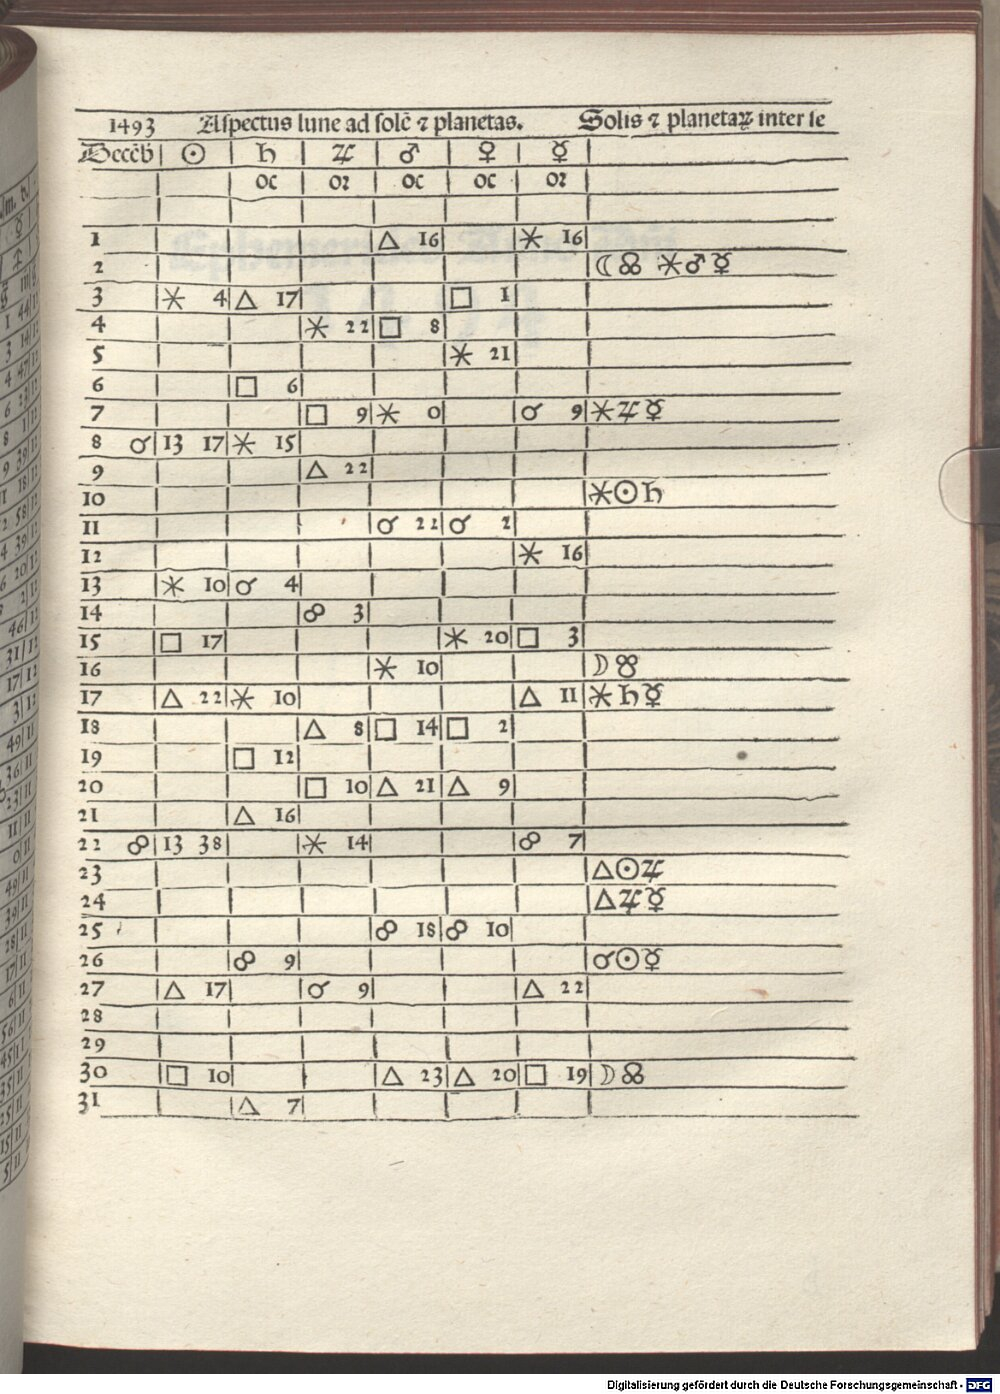 1493 Aspectus lune ad solē ⁊ planetas. Solis ⁊ planetaꝝ inter se
Decēb ☉ ♄ ♃ ♂ ♀ ☿
oc oꝛ oc oc oꝛ
1 △ 16 ⚹ 16
2 ☾ ☊ ⚹ ♂ ☿
3 ⚹ 4 △ 17 □ 1
4 ⚹ 22 □ 8
5 ⚹ 21
6 □ 6
7 □ 9 ⚹ 0 ☌ 9 ⚹ ♃ ☿
8 ☌ 13 17 ⚹ 15
9 △ 22
10 ⚹ ☉ ♄
11 ☌ 22 ☌ 2
12 ⚹ 16
13 ⚹ 10 ☌ 4
14 ☍ 3
15 □ 17 ⚹ 20 □ 3
16 ⚹ 10 ☽ ☋
17 △ 22 ⚹ 10 △ 11 ⚹ ♄ ☿
18 △ 8 □ 14 □ 2
19 □ 12
20 □ 10 △ 21 △ 9
21 △ 16
22 ☍ 13 38 ⚹ 14 ☍ 7
23 △ ☉ ♃
24 △ ♃ ☿
25 ☍ 18 ☍ 10
26 ☍ 9 ☌ ☉ ☿
27 △ 17 ☌ 9 △ 22
28
29
30 □ 10 △ 23 △ 20 □ 19 ☽ ☊
31 △ 7
Digitalisierung gefördert durch die Deutsche Forschungsgemeinschaft - DFG